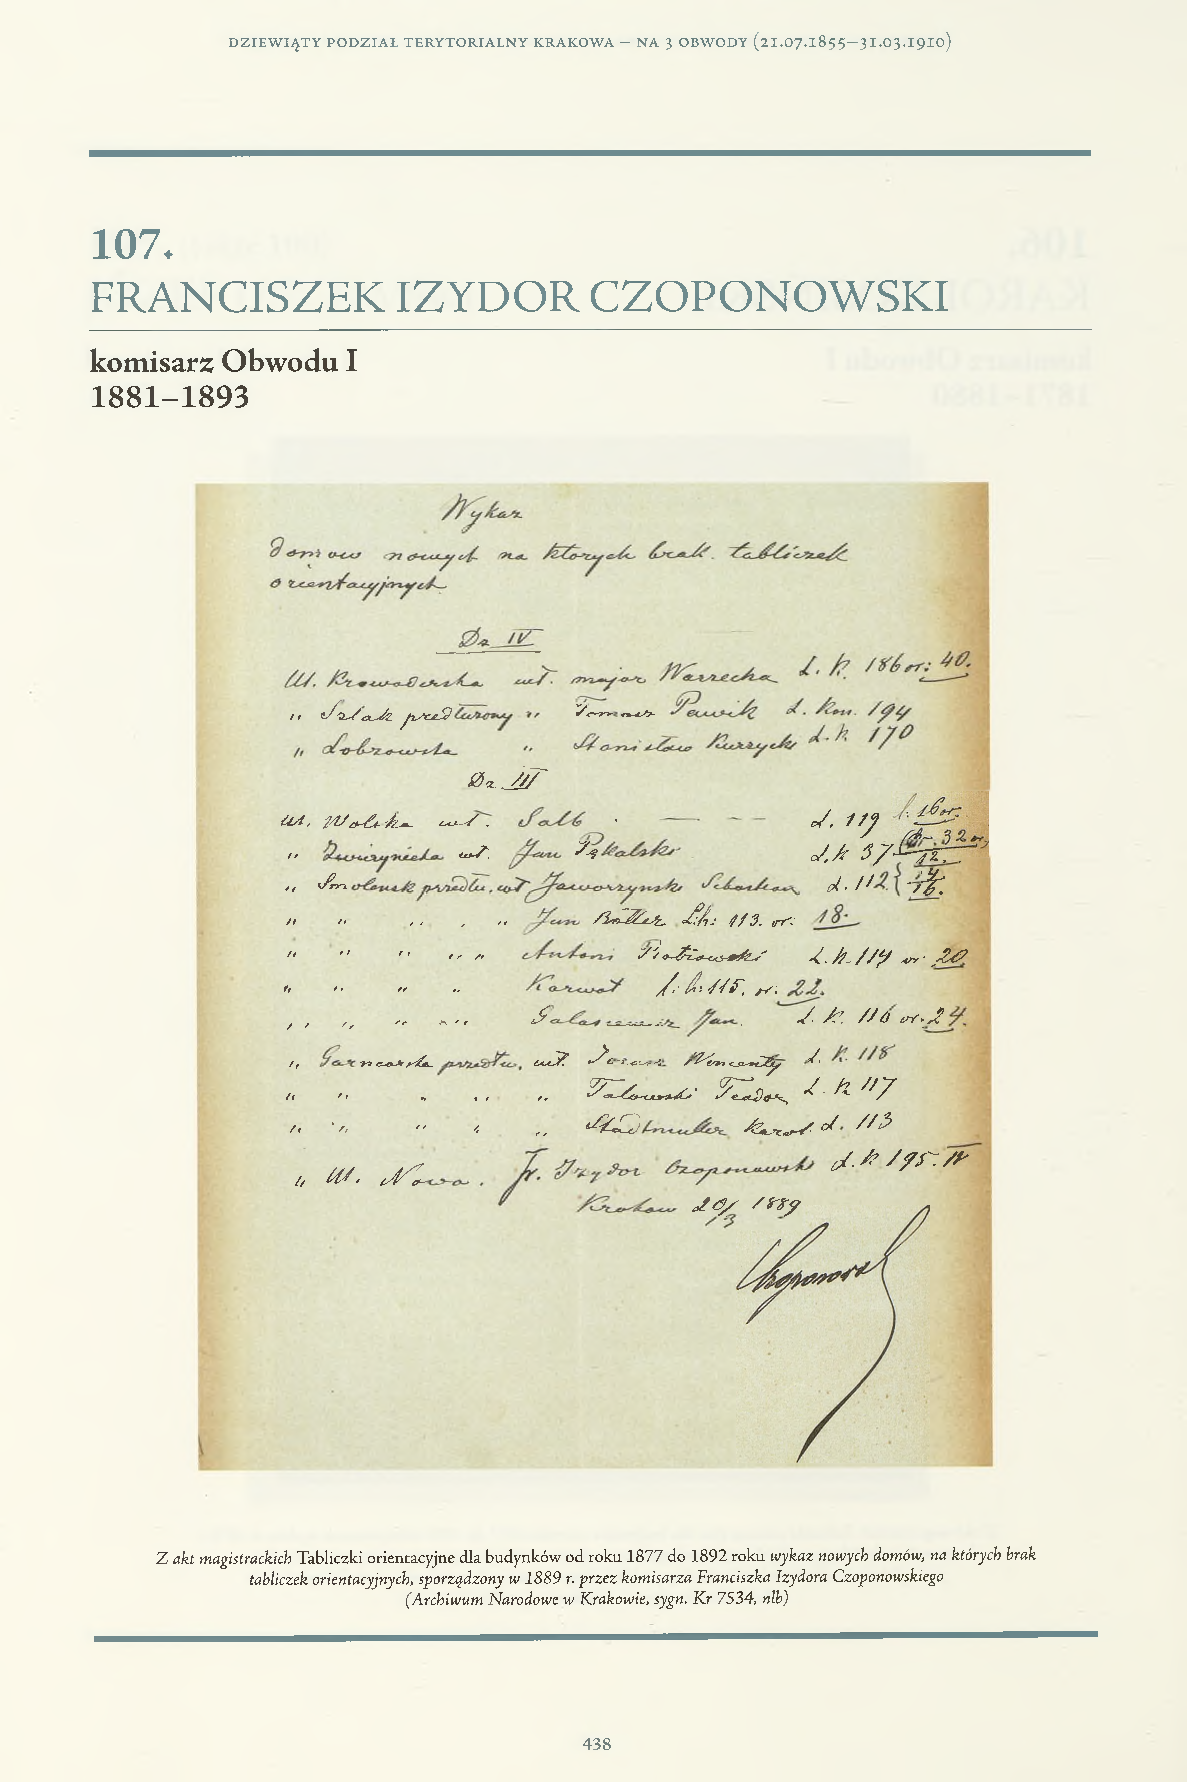 DZIEWIĄTY PODZIAŁ TERYTORIALNY KRAKOWA – NA 3 OBWODY (21.07.1855–31.03.1910)
107.
FRANCISZEK IZYDOR CZOPONOWSKI
komisarz Obwodu I
1881–1893
Wykaz
domow nowych na ktorych brak tabliczek
orientacyjnych
Dz IV
Ul. Krowoderska wł. major Warzecha L. k. 186 or: 40.
" Szlak przedłużony " Tomasz Pawik L. kon. 194
" Łobzowska " Stanisław Kurzycki L. k. 170
Dz. III
Ul. Wolska wł. Salb - — - - L. 119 l. 16 or.
" Zwierzyniecka wł. Jan Pękalski L. k 37 32 or. 12.
" Smoleńsk przedłu. wł Jaworzynski Sebastian L. 112 } 14 16.
" " " " " Jan Lk: 113. or: 18.
" " " " " Antoni Piotrowski L. k. 114 or 20
" " " " Karwat l: k: 115. or: 22.
" " " " " Jan. L. k. 116 or. 24.
" Garncarska przedłu. wł. Wincenty L. k. 118
" " " " " Talowski Teodor L. k 117
" " " " " Stadtmuller Karol L. 113
" Ul. Nowa. Fr. Izydor Czoponowski L. k 195. IV
Krakow 20/3 1889
Czoponowski
Z akt magistrackich Tabliczki orientacyjne dla budynków od roku 1877 do 1892 roku wykaz nowych domów, na których brak
tabliczek orientacyjnych, sporządzony w 1889 r. przez komisarza Franciszka Izydora Czoponowskiego
(Archiwum Narodowe w Krakowie, sygn. Kr 7534, nlb)
438